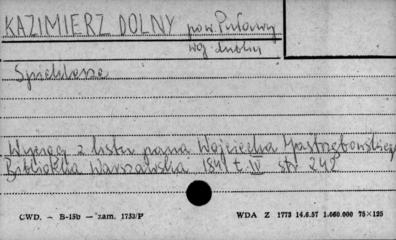 KAZIMIERZ DOLNY pow. Puławy
woj. lublin
Spichlerze
Wyjątek z listu pana Wojciecha Jastrzębowskiego
Biblioteka Warszawska 1841 t. IV str 242
CWD. — B-15b — zam. 1733/P WDA Z 1773 14.6.57 1.060.000 75×125